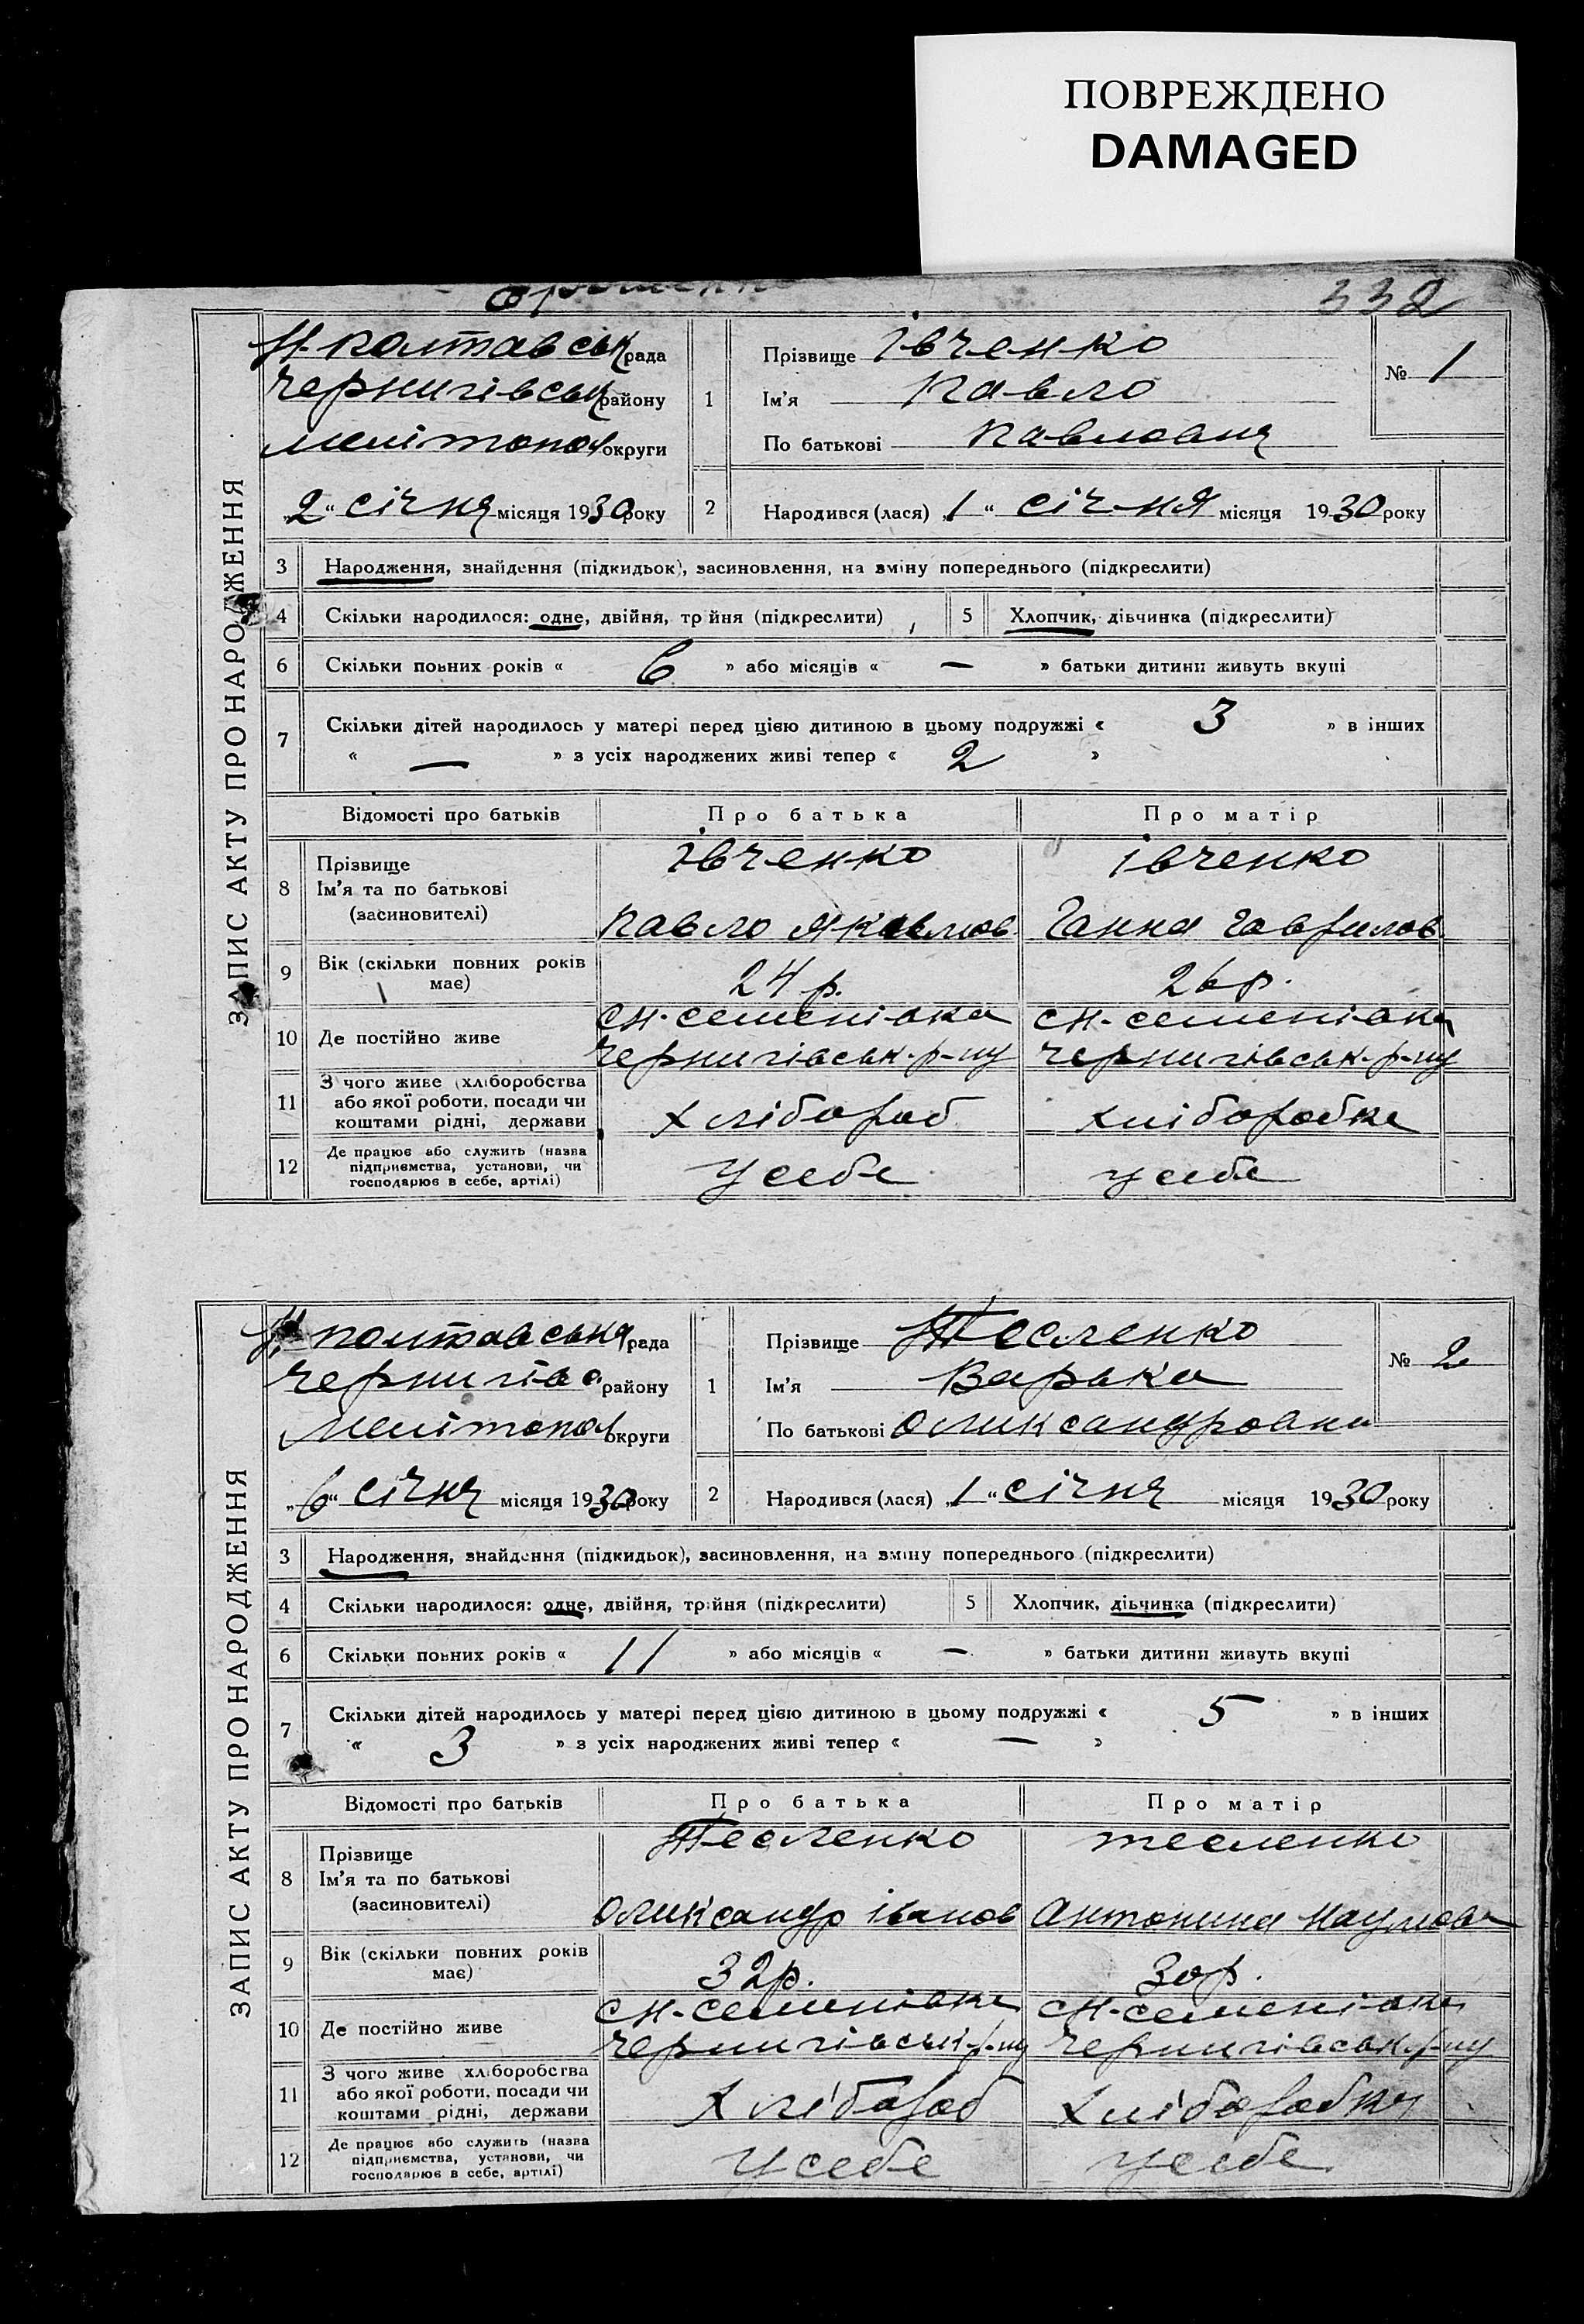 ПОВРЕЖДЕНО
DAMAGED
332
ЗАПИС АКТУ ПРО НАРОДЖЕННЯ
Н-Полтавськ рада
Чернигівськ району
Мелітопол округи
„2“ січня місяця 1930 року
1
Прізвище Івченко
Ім'я Павло
По батькові Павлович
№ 1
2
Народився (лася) „1“ січня місяця 1930 року
3 Народження, знайдення (підкидьок), засиновлення, на зміну попереднього (підкреслити)
4 Скільки народилося: одне, двійня, трійня (підкреслити) 5 Хлопчик, дівчинка (підкреслити)
6 Скільки повних років « 6 » або місяців « — » батьки дитини живуть вкупі
7 Скільки дітей народилось у матері перед цією дитиною в цьому подружжі « 3 » в інших
« — » з усіх народжених живі тепер « 2 »
Відомості про батьків Про батька Про матір
8 Прізвище
Ім'я та по батькові
(засиновителі)
Івченко
Павло Яковлов
Івченко
Ганна Гаврилов
9 Вік (скільки повних років
має)
24 р. 26 р.
10 Де постійно живе
с Н-Семенівка
Чернигівськ. р-ну
с Н-Семенівка
Чернигівськ. р-ну
11 З чого живе (хліборобства
або якої роботи, посади чи
коштами рідні, держави
Хлібороб Хліборобка
12 Де працює або служить (назва
підприємства, установи, чи
господарює в себе, артілі)
У себе у себе
ЗАПИС АКТУ ПРО НАРОДЖЕННЯ
Н. Полтавська рада
Чернигівс району
Мелітопол округи
„6“ січня місяця 1930 року
1
Прізвище Тесленко
Ім'я Варька
По батькові Олександровна
№ 2
2
Народився (лася) „1“ січня місяця 1930 року
3 Народження, знайдення (підкидьок), засиновлення, на зміну попереднього (підкреслити)
4 Скільки народилося: одне, двійня, трійня (підкреслити) 5 Хлопчик, дівчинка (підкреслити)
6 Скільки повних років « 11 » або місяців « — » батьки дитини живуть вкупі
7 Скільки дітей народилось у матері перед цією дитиною в цьому подружжі « 5 » в інших
« 3 » з усіх народжених живі тепер « — »
Відомості про батьків Про батька Про матір
8 Прізвище
Ім'я та по батькові
(засиновителі)
Тесленко
Олександр Іванов
Тесленко
Антонина Наумова
9 Вік (скільки повних років
має)
32р. 30р.
10 Де постійно живе
с Н-Семенівка
Чернигівськ р-ну
с Н-Семенівка
Чернигівськ. р-ну
11 З чого живе (хліборобства
або якої роботи, посади чи
коштами рідні, держави
Хлібороб Хліборобка
12 Де працює або служить (назва
підприємства, установи, чи
господарює в себе, артілі)
У себе У себе